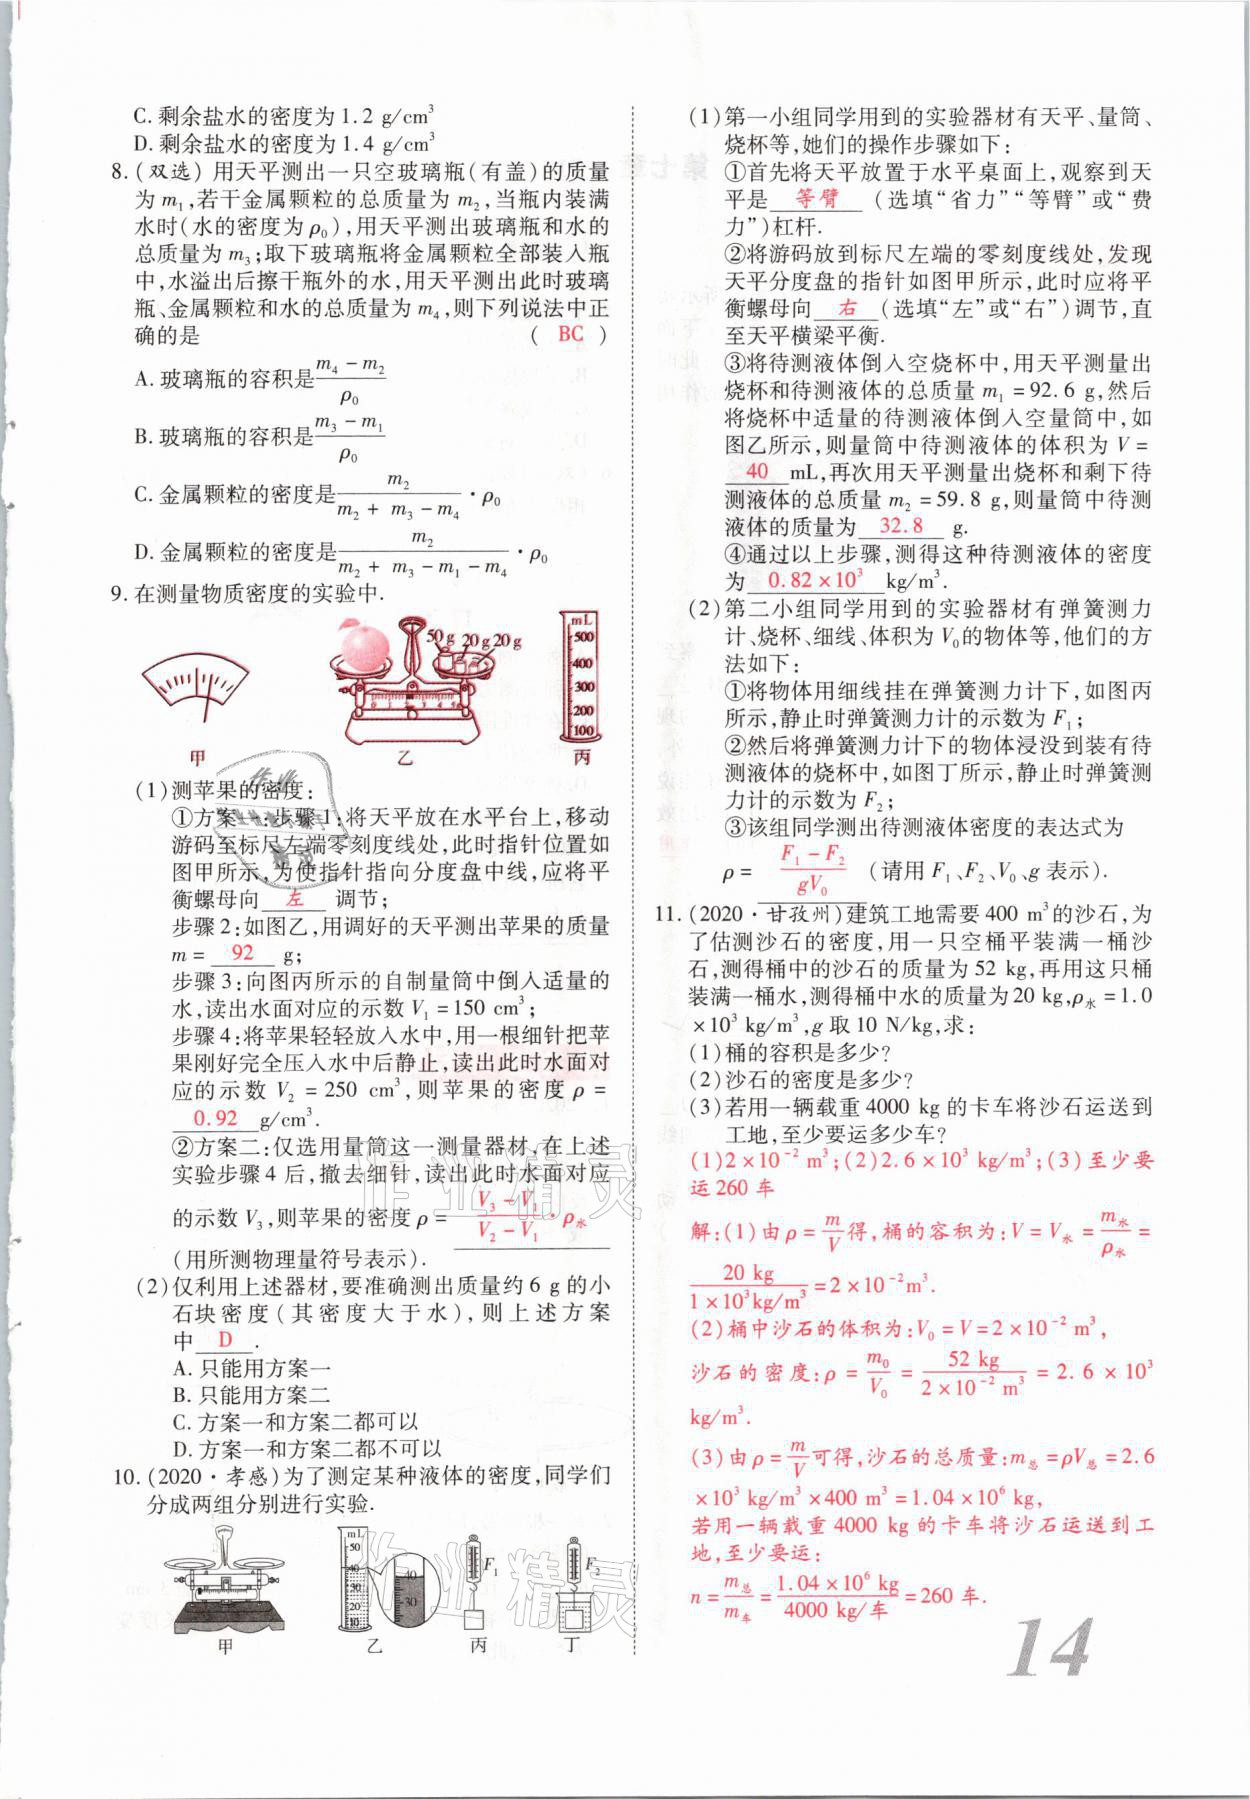 C. 剩余盐水的密度为 1.2 g/cm³
D. 剩余盐水的密度为 1.4 g/cm³
8. (双选) 用天平测出一只空玻璃瓶(有盖)的质量
为 m₁,若干金属颗粒的总质量为 m₂,当瓶内装满
水时(水的密度为 ρ₀),用天平测出玻璃瓶和水的
总质量为 m₃;取下玻璃瓶将金属颗粒全部装入瓶
中,水溢出后擦干瓶外的水,用天平测出此时玻璃
瓶、金属颗粒和水的总质量为 m₄,则下列说法中正
确的是 ( BC )
A. 玻璃瓶的容积是 (m₄ − m₂)/ρ₀
B. 玻璃瓶的容积是 (m₃ − m₁)/ρ₀
C. 金属颗粒的密度是 m₂/(m₂ + m₃ − m₄) · ρ₀
D. 金属颗粒的密度是 m₂/(m₂ + m₃ − m₁ − m₄) · ρ₀
9. 在测量物质密度的实验中.
50 g 20 g 20 g
0 1 2 3 4 5
mL
500
400
300
200
100
甲 乙 丙
(1)测苹果的密度:
①方案一:步骤 1:将天平放在水平台上,移动
游码至标尺左端零刻度线处,此时指针位置如
图甲所示,为使指针指向分度盘中线,应将平
衡螺母向 左 调节;
步骤 2:如图乙,用调好的天平测出苹果的质量
m = 92 g;
步骤 3:向图丙所示的自制量筒中倒入适量的
水,读出水面对应的示数 V₁ = 150 cm³;
步骤 4:将苹果轻轻放入水中,用一根细针把苹
果刚好完全压入水中后静止,读出此时水面对
应的示数 V₂ = 250 cm³,则苹果的密度 ρ =
0.92 g/cm³.
②方案二:仅选用量筒这一测量器材,在上述
实验步骤 4 后,撤去细针,读出此时水面对应
的示数 V₃,则苹果的密度 ρ = (V₃ − V₁)/(V₂ − V₁) · ρ水
(用所测物理量符号表示).
(2)仅利用上述器材,要准确测出质量约 6 g 的小
石块密度(其密度大于水),则上述方案
中 D .
A. 只能用方案一
B. 只能用方案二
C. 方案一和方案二都可以
D. 方案一和方案二都不可以
10. (2020·孝感)为了测定某种液体的密度,同学们
分成两组分别进行实验.
mL
50
40
30
20
10
40
30
F₁
F₂
甲 乙 丙 丁
(1)第一小组同学用到的实验器材有天平、量筒、
烧杯等,她们的操作步骤如下:
①首先将天平放置于水平桌面上,观察到天
平是 等臂 (选填“省力”“等臂”或“费
力”)杠杆.
②将游码放到标尺左端的零刻度线处,发现
天平分度盘的指针如图甲所示,此时应将平
衡螺母向 右 (选填“左”或“右”)调节,直
至天平横梁平衡.
③将待测液体倒入空烧杯中,用天平测量出
烧杯和待测液体的总质量 m₁ = 92.6 g,然后
将烧杯中适量的待测液体倒入空量筒中,如
图乙所示,则量筒中待测液体的体积为 V =
40 mL,再次用天平测量出烧杯和剩下待
测液体的总质量 m₂ = 59.8 g,则量筒中待测
液体的质量为 32.8 g.
④通过以上步骤,测得这种待测液体的密度
为 0.82×10³ kg/m³.
(2)第二小组同学用到的实验器材有弹簧测力
计、烧杯、细线、体积为 V₀的物体等,他们的方
法如下:
①将物体用细线挂在弹簧测力计下,如图丙
所示,静止时弹簧测力计的示数为 F₁;
②然后将弹簧测力计下的物体浸没到装有待
测液体的烧杯中,如图丁所示,静止时弹簧测
力计的示数为 F₂;
③该组同学测出待测液体密度的表达式为
ρ = (F₁ − F₂)/(gV₀) (请用 F₁、F₂、V₀、g 表示).
11. (2020·甘孜州)建筑工地需要 400 m³的沙石,为
了估测沙石的密度,用一只空桶平装满一桶沙
石,测得桶中的沙石的质量为 52 kg,再用这只桶
装满一桶水,测得桶中水的质量为 20 kg,ρ水 = 1.0
×10³ kg/m³,g 取 10 N/kg,求:
(1)桶的容积是多少?
(2)沙石的密度是多少?
(3)若用一辆载重 4000 kg 的卡车将沙石运送到
工地,至少要运多少车?
(1)2×10⁻² m³;(2)2.6×10³ kg/m³;(3)至少要
运 260 车
解:(1)由 ρ = m/V 得,桶的容积为:V = V水 = m水/ρ水 =
20 kg/(1×10³kg/m³) = 2×10⁻²m³.
(2)桶中沙石的体积为:V₀ = V = 2×10⁻² m³,
沙石的密度:ρ = m₀/V₀ = 52 kg/(2×10⁻² m³) = 2.6 × 10³
kg/m³.
(3)由 ρ = m/V 可得,沙石的总质量:m总 = ρV总 = 2.6
×10³ kg/m³×400 m³ = 1.04×10⁶ kg,
若用一辆载重 4000 kg 的卡车将沙石运送到工
地,至少要运:
n = m总/m车 = 1.04×10⁶ kg/(4000 kg/车) = 260 车.
14
作业精灵
作业精灵